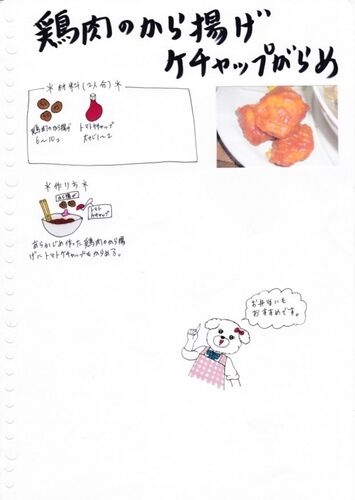 鶏肉のから揚げ
ケチャップがらめ
＊材料(2人分)＊
鶏肉のから揚げ
6〜10コ
トマトケチャップ
大さじ1〜2
＊作り方＊
から揚げ
トマト
ケチャップ
あらかじめ作った鶏肉のから揚
げにトマトケチャップをからめる。
お弁当にも
おすすめです。